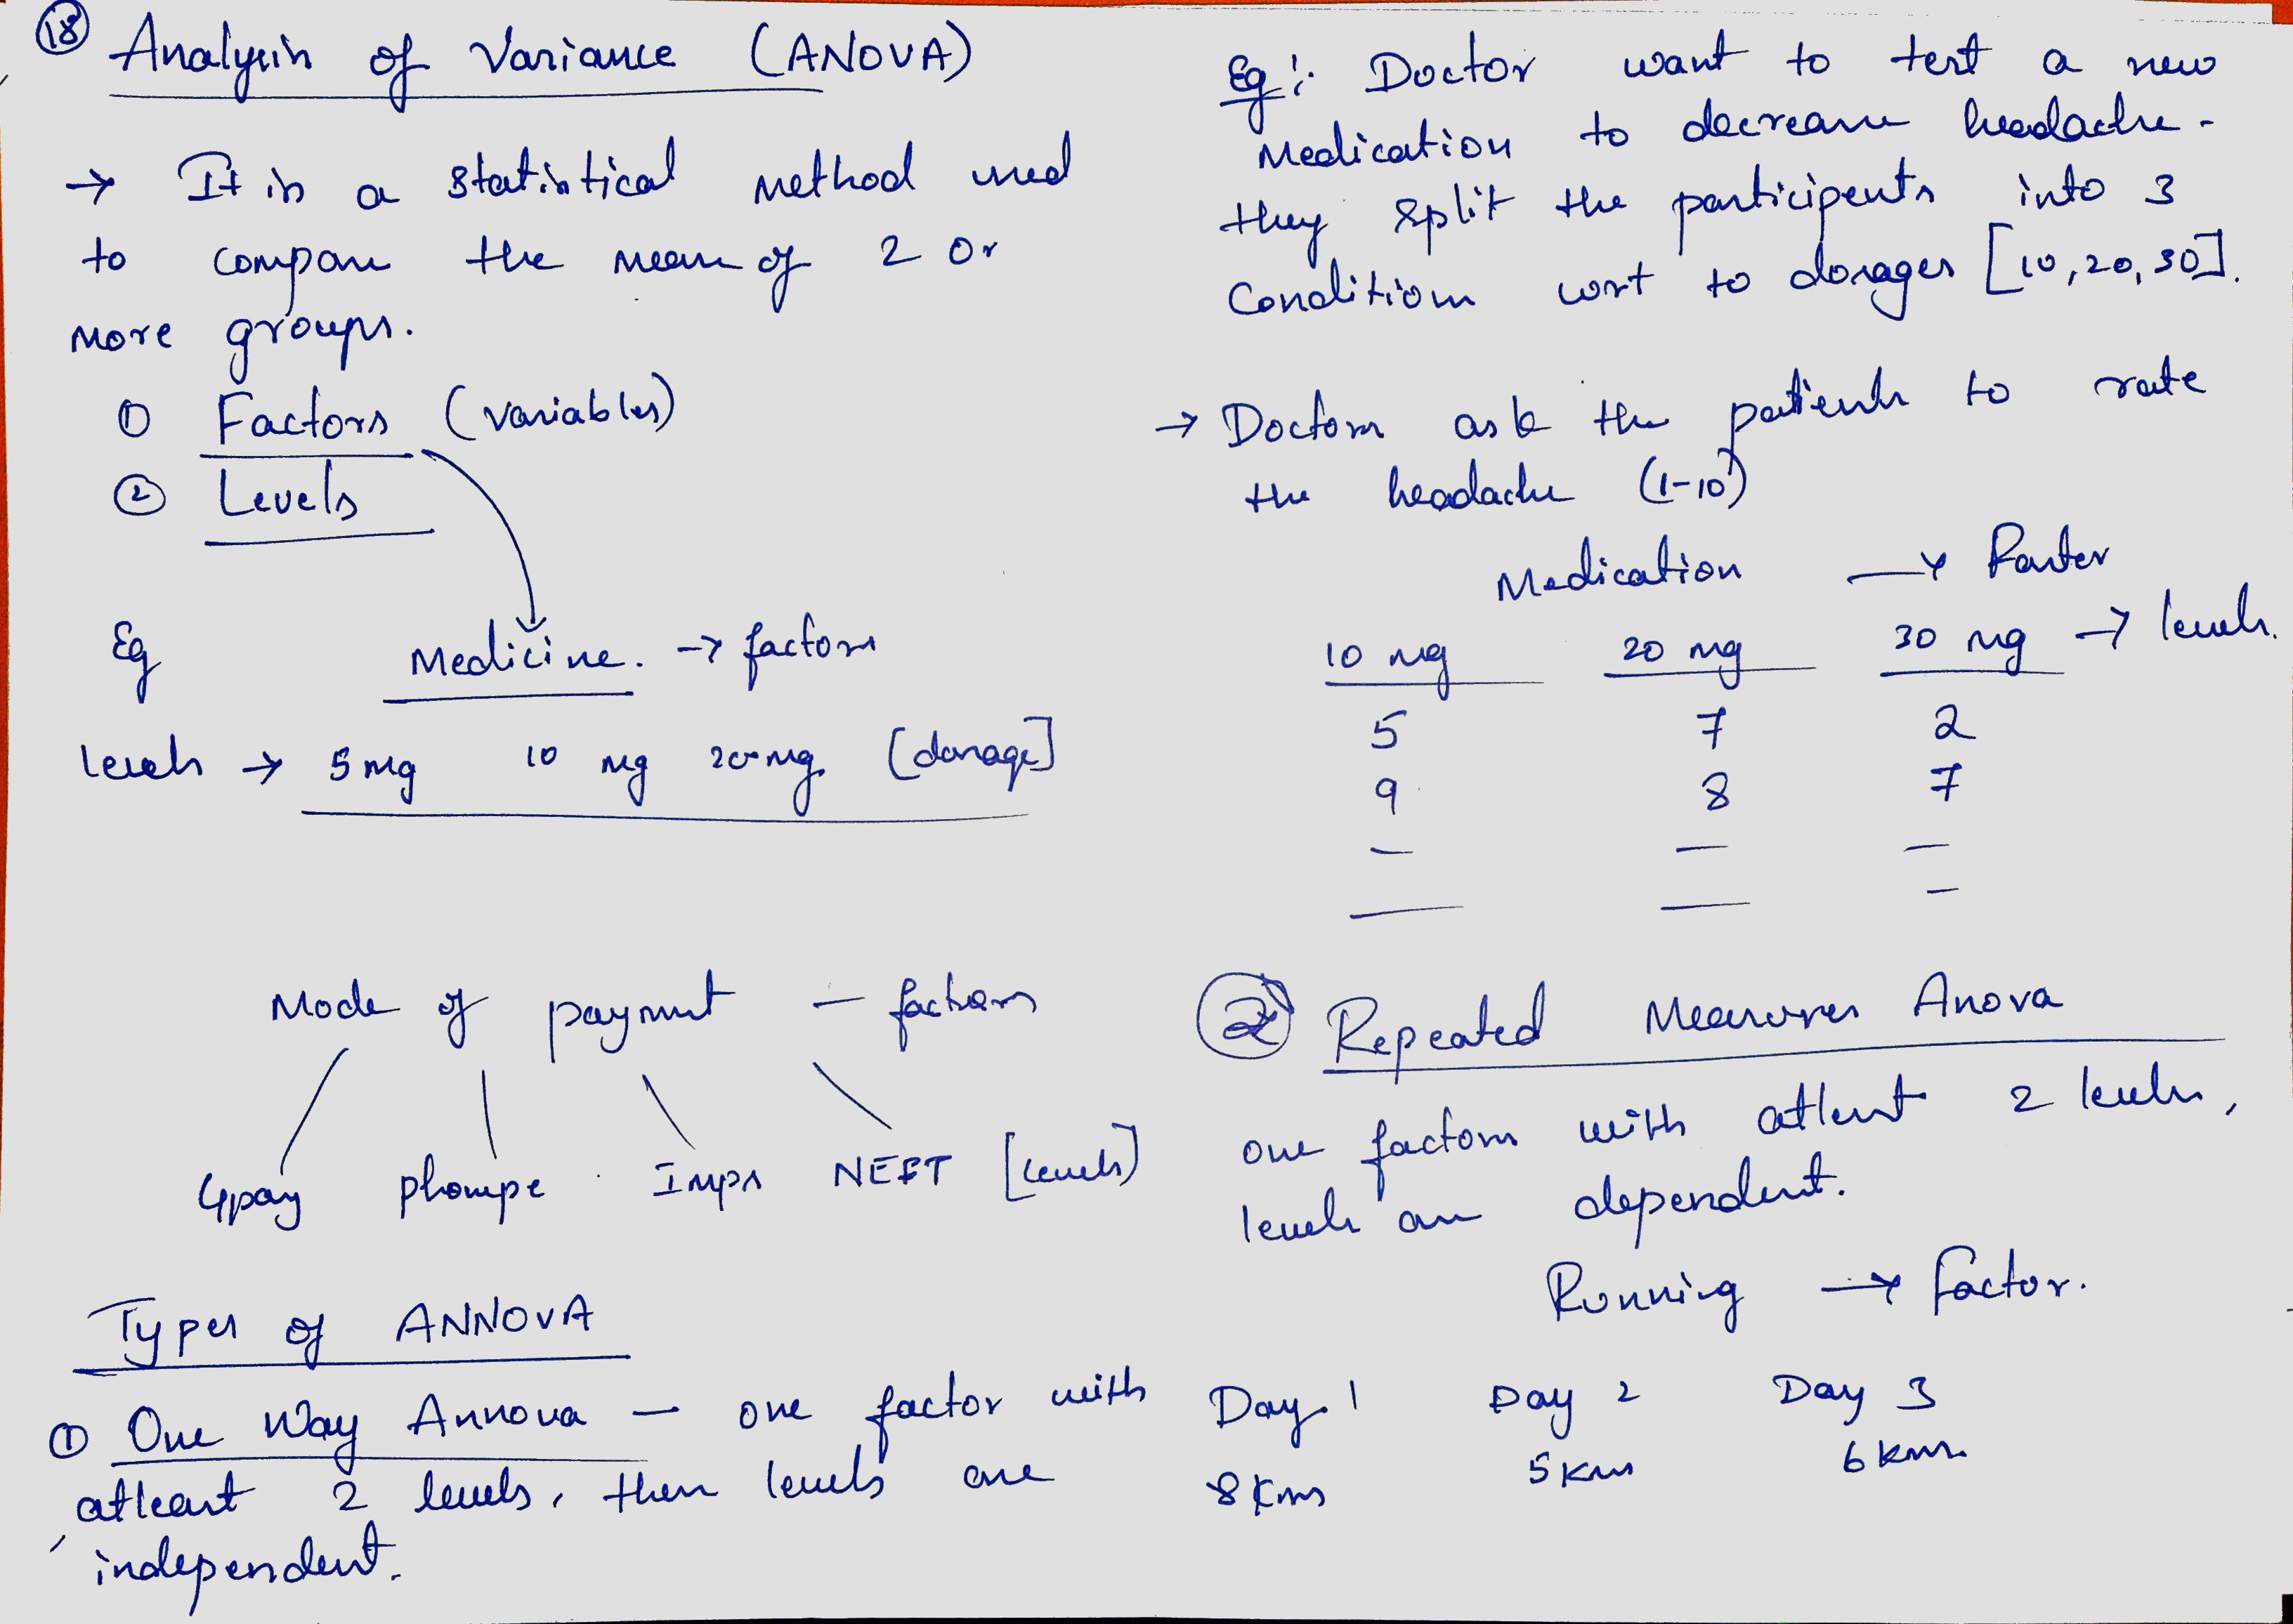 18 Analysis of Variance (ANOVA)
→ It is a statistical method used
to compare the mean of 2 or
more groups.
① Factors (variables)
② Levels
Eg Medicine. → factors
levels → 5mg 10 mg 20mg [dosage]
Mode of payment — factors
Gpay phonepe Imps NEFT [levels]
Types of ANNOVA
① One Way Annova — one factor with
atleast 2 levels, then levels are
independent.
Eg:- Doctor want to test a new
Medication to decrease headache -
they split the participents into 3
Conditions wrt to dosages [10,20,30].
→ Doctors ask the patients to rate
the headache (1-10)
Medication → Factor
10 mg 20 mg 30 mg → levels.
5 7 2
9 8 7
— — —
— — —
② Repeated Measures Anova
one factors with atleast 2 levels,
levels are dependent.
Running → factor.
Day 1 Day 2 Day 3
8Kms 5Kms 6Kms